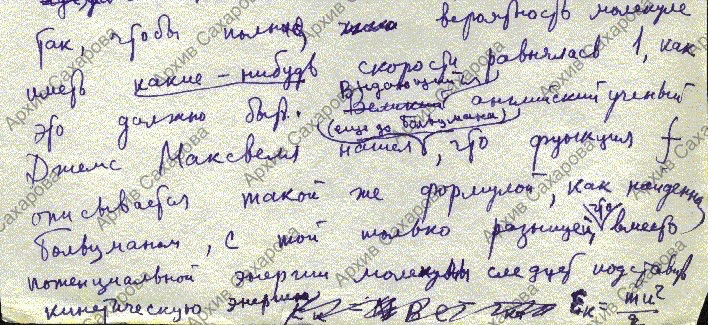 так, чтобы полная вероятность молекуле
иметь какие-нибудь скорости равнялась 1, как
это должно быть. Великий Выдающийся английский ученый
Джемс Максвелл (еще до Больцмана) нашел, что функция f
описывается такой же формулой, как найденная
Больцманом, с той только разницей, что вместо
потенциальной энергии молекулы следует подставить
кинетическую энергию Eк = mu²/2
Архив Сахарова